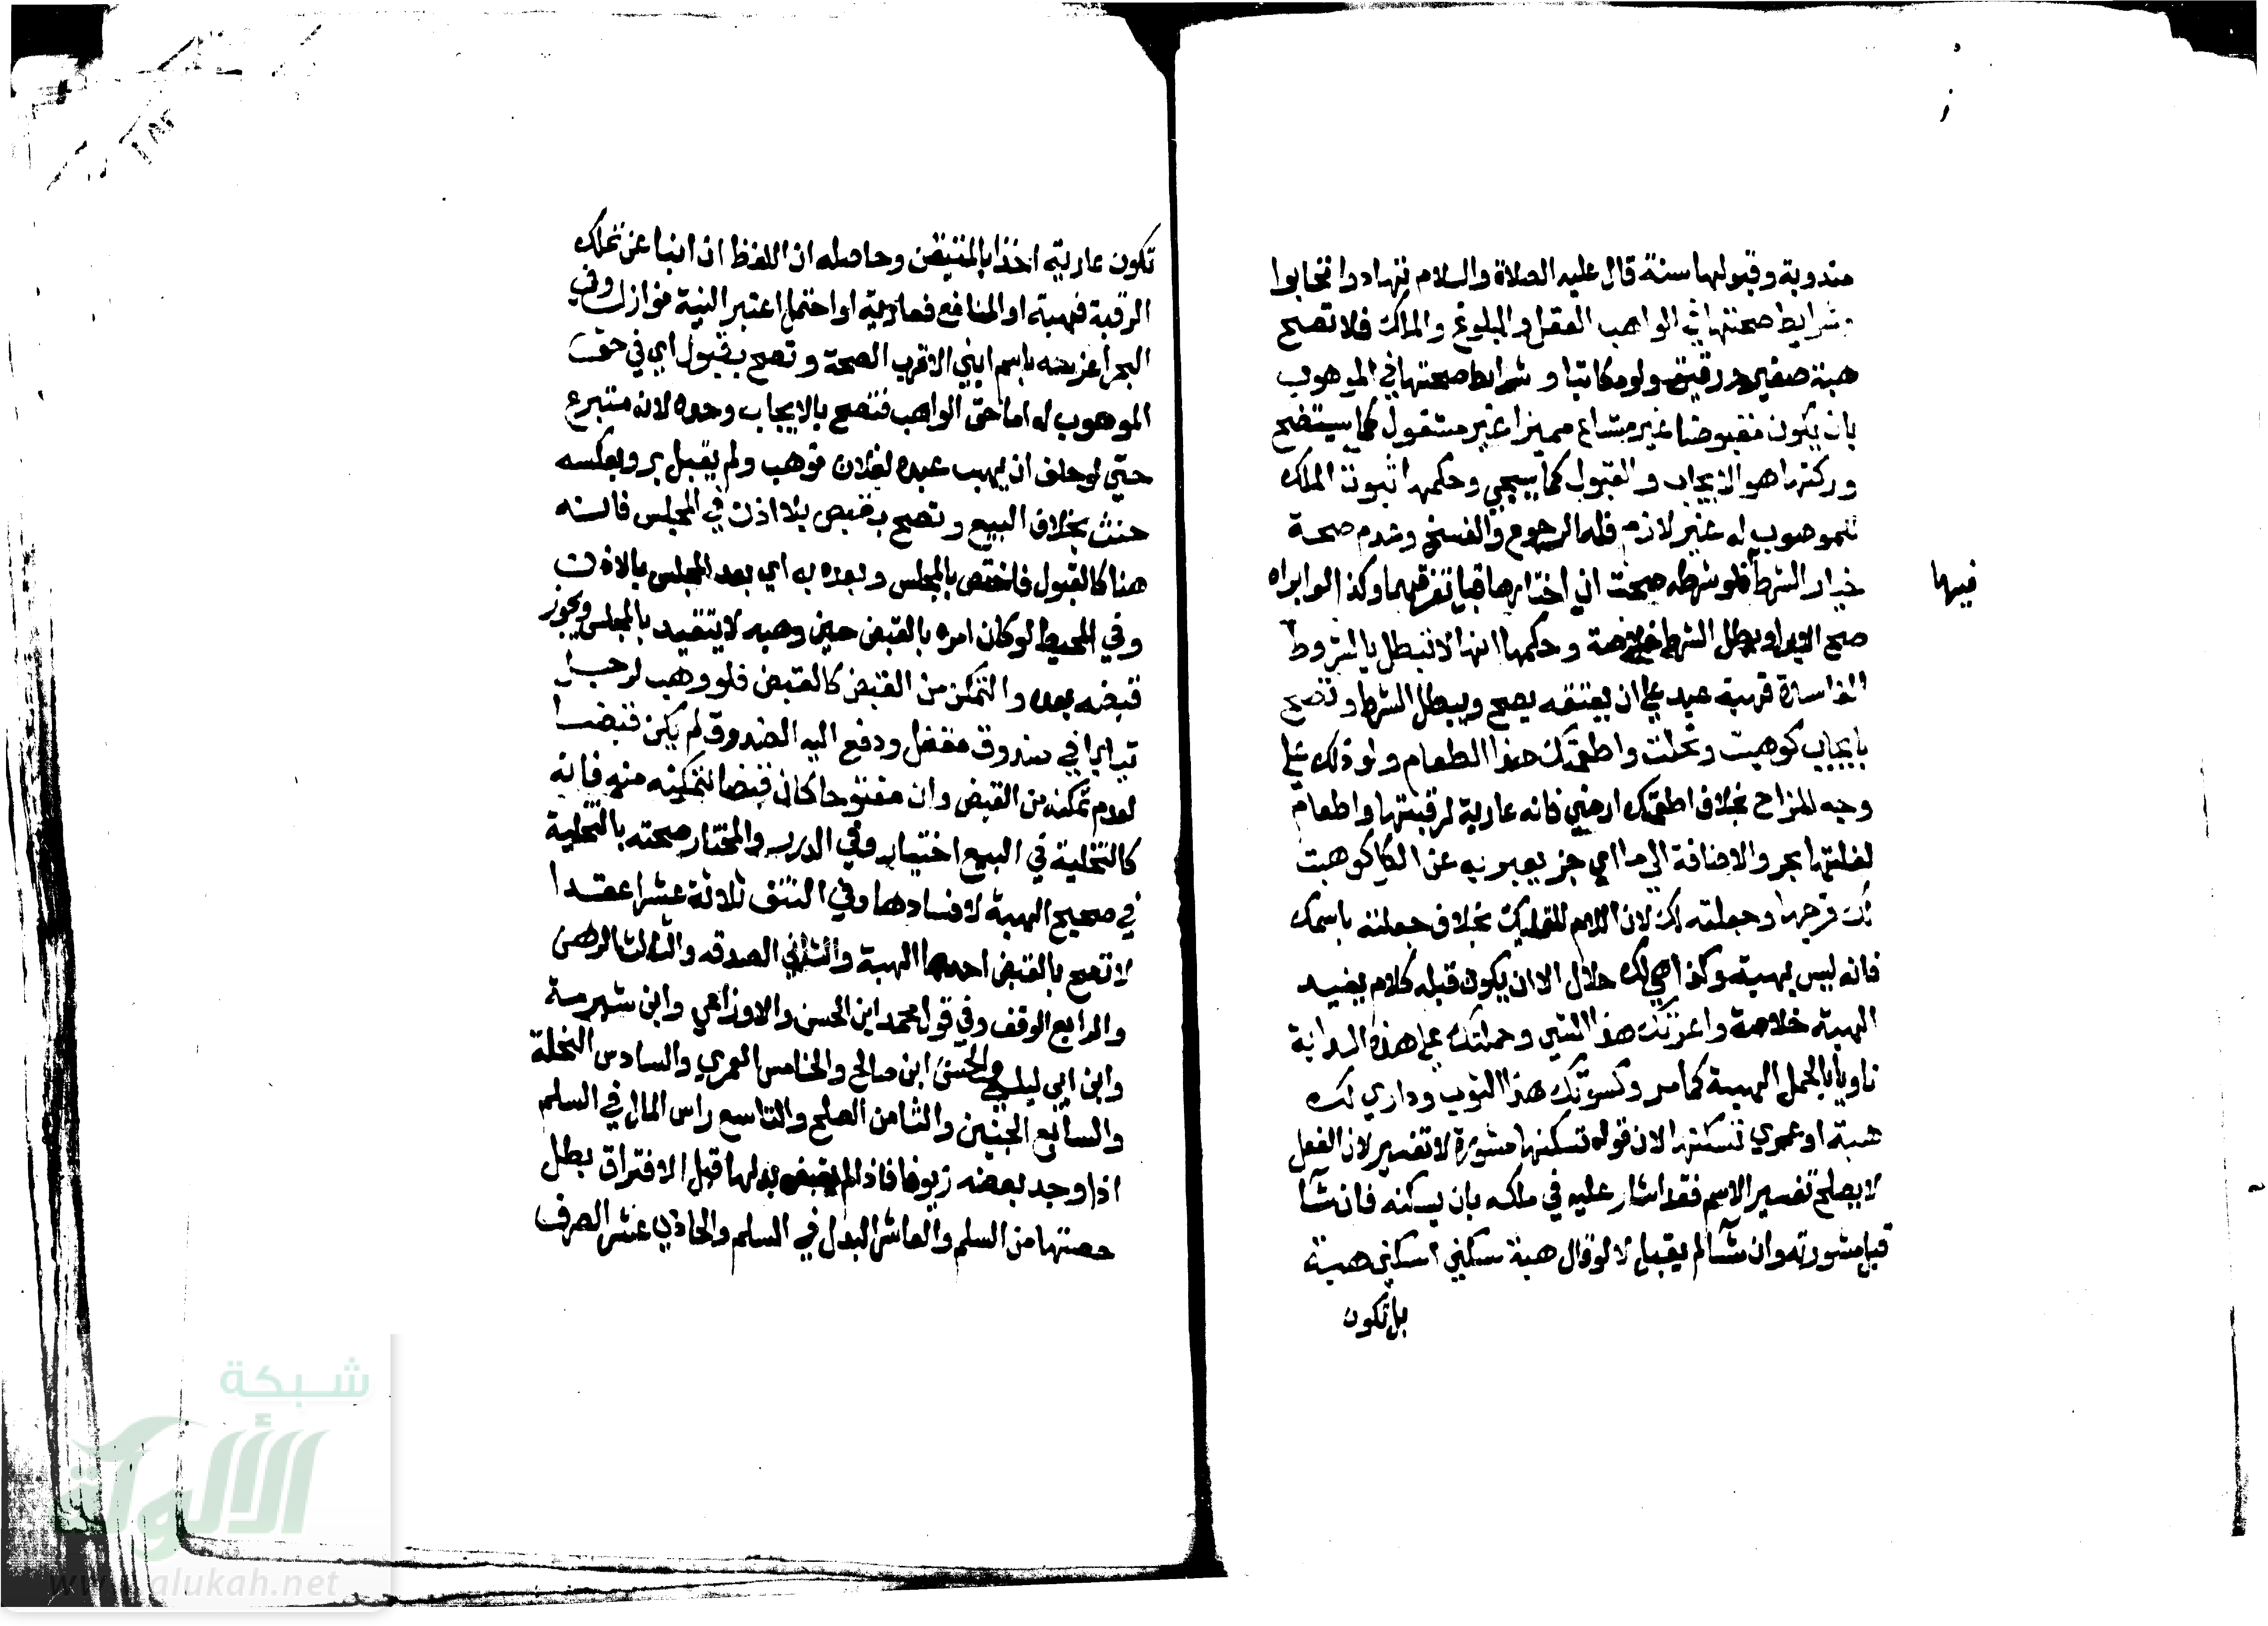 مندوبة وقبولها سنة قال عليه الصلاة والسلام تهادوا تحابوا
وشرايط صحتها في الواهب العقل والبلوغ والملك فلا تصح
هبة صغير ورقيق ولو مكاتبا وشرايط صحتها في الموهوب
بان يكون مقبوضا غير مشاع مميزا غير مشغول كما سيتضح
وركنها هو الايجاب والقبول كما سيجي وحكمها ثبوت الملك
للموهوب له غير لازم فله الرجوع والفسخ وعدم صحة
خيار الشرط فيها فلو شرطه صحت ان اختارها قبل تفرقهما وكذا لو ابراه
صح الابرا وبطل الشرط خلاصة وحكمها انها لا تبطل بالشروط
الفاسدة فهبة عبد على ان يعتقه يصح ويبطل الشرط وتصح
بايجاب كوهبت ونحلت واطعمتك هذا الطعام ولو ذلك على
وجه المزاح بخلاف اطعمتك ارضي فانه عارية لرقبتها واطعام
لغلتها بحر والاضافة الى ما اي جز يعبر به عن الكل كوهبت
لك فرجها وجعلته لك لان اللام للتمليك بخلاف جعلته باسمك
فانه ليس بهبة وكذا هي لك حلال الا ان يكون قبله كلام يفيد
الهبة خلاصة واعمرتك هذا الشي وحملتك على هذه الدابة
ناويا بالحمل الهبة كما مر وكسوتك هذا الثوب وداري لك
هبة او عمري تسكنها لان قوله تسكنها مشورة لا تفسير لان الفعل
لا يصلح تفسير الاسم فقد اشار عليه في ملكه بان يسكنه فان شآ
قبل مشورته وان شآ لم يقبل لا لو قال هبة سكني اسكني هبة
بل تكون
تكون عارية اخذا بالمتيقن وحاصله ان اللفظ ان انبا عن تملك
الرقبة فهبة او المنافع فعارية او احتمل اعتبر النية نوازل وفي
البحر اغرسه باسم ابني الاقرب الصحة وتصح بقبول اي في حق
الموهوب له اما حق الواهب فتصح بالايجاب وحده لانه متبرع
حتي لو حلف ان يهب عبده لفلان فوهب ولم يقبل بر وبعكسه
حنث بخلاف البيع وتصح بقبض بلا اذن في المجلس فانه
هنا كالقبول فاختص بالمجلس وبعده به اي بعد المجلس بالاذن
وفي المحيط لو كان امره بالقبض حين وهبه لا يتقيد بالمجلس ويجوز
قبضه بعده والتمكن من القبض كالقبض فلو وهب لرجل
ثيابا في صندوق مقفل ودفع اليه الصندوق لم يكن قبضا
لعدم تمكنه من القبض وان مفتوحا كان قبضا لتمكينه منه فانه
كالتخلية في البيع اختيار وفي الدرر والمختار صحته بالتخلية
في صحيح الهبة لا فسادها وفي النتف ثلاثة عشر عقدا
لا تصح بالقبض احدها الهبة والثاني الصدقه والثالث الرهن
والرابع الوقف وفي قول محمد ابن الحسن والاوزاعي وابن شبرمة
وابن ابي ليلى والحسن ابن صالح والخامس العمري والسادس النحلة
والسابع الجنين والثامن الصلح والتاسع راس المال في السلم
اذا وجد بعضه زيوفا فاذا لم يقبض بدلها قبل الافتراق بطل
حصتها من السلم والعاشر البدل في السلم والحادي عشر الصرف
شبكة
الألوكة
www.alukah.net